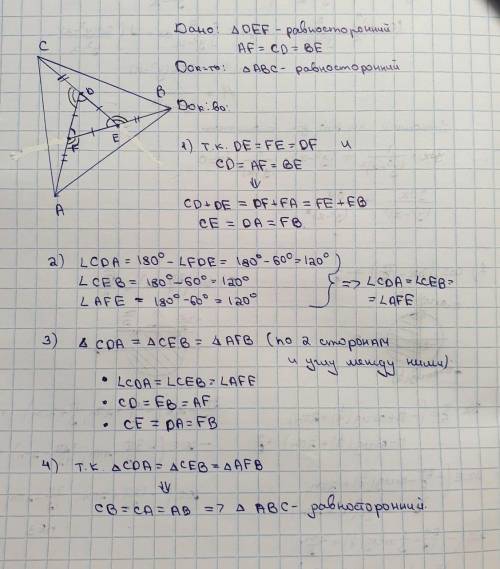 Дано: △DEF - равносторонний
AF = CD = BE
Док-ть: △ABC - равносторонний
Док-во:
C
D
B
E
F
A
1) т.к. DE = FE = DF и
CD = AF = BE
⇓
CD + DE = DF + FA = FE + EB
CE = DA = FB
2) ∠CDA = 180° - ∠FDE = 180° - 60° = 120°
∠CEB = 180° - 60° = 120°
∠AFE = 180° - 60° = 120°
} => ∠CDA = ∠CEB =
= ∠AFE
3) △CDA = △CEB = △AFB (по 2 сторонам
и углу между ними)
• ∠CDA = ∠CEB = ∠AFE
• CD = EB = AF
• CE = DA = FB
4) т.к. △CDA = △CEB = △AFB
⇓
CB = CA = AB => △ABC - равносторонний.